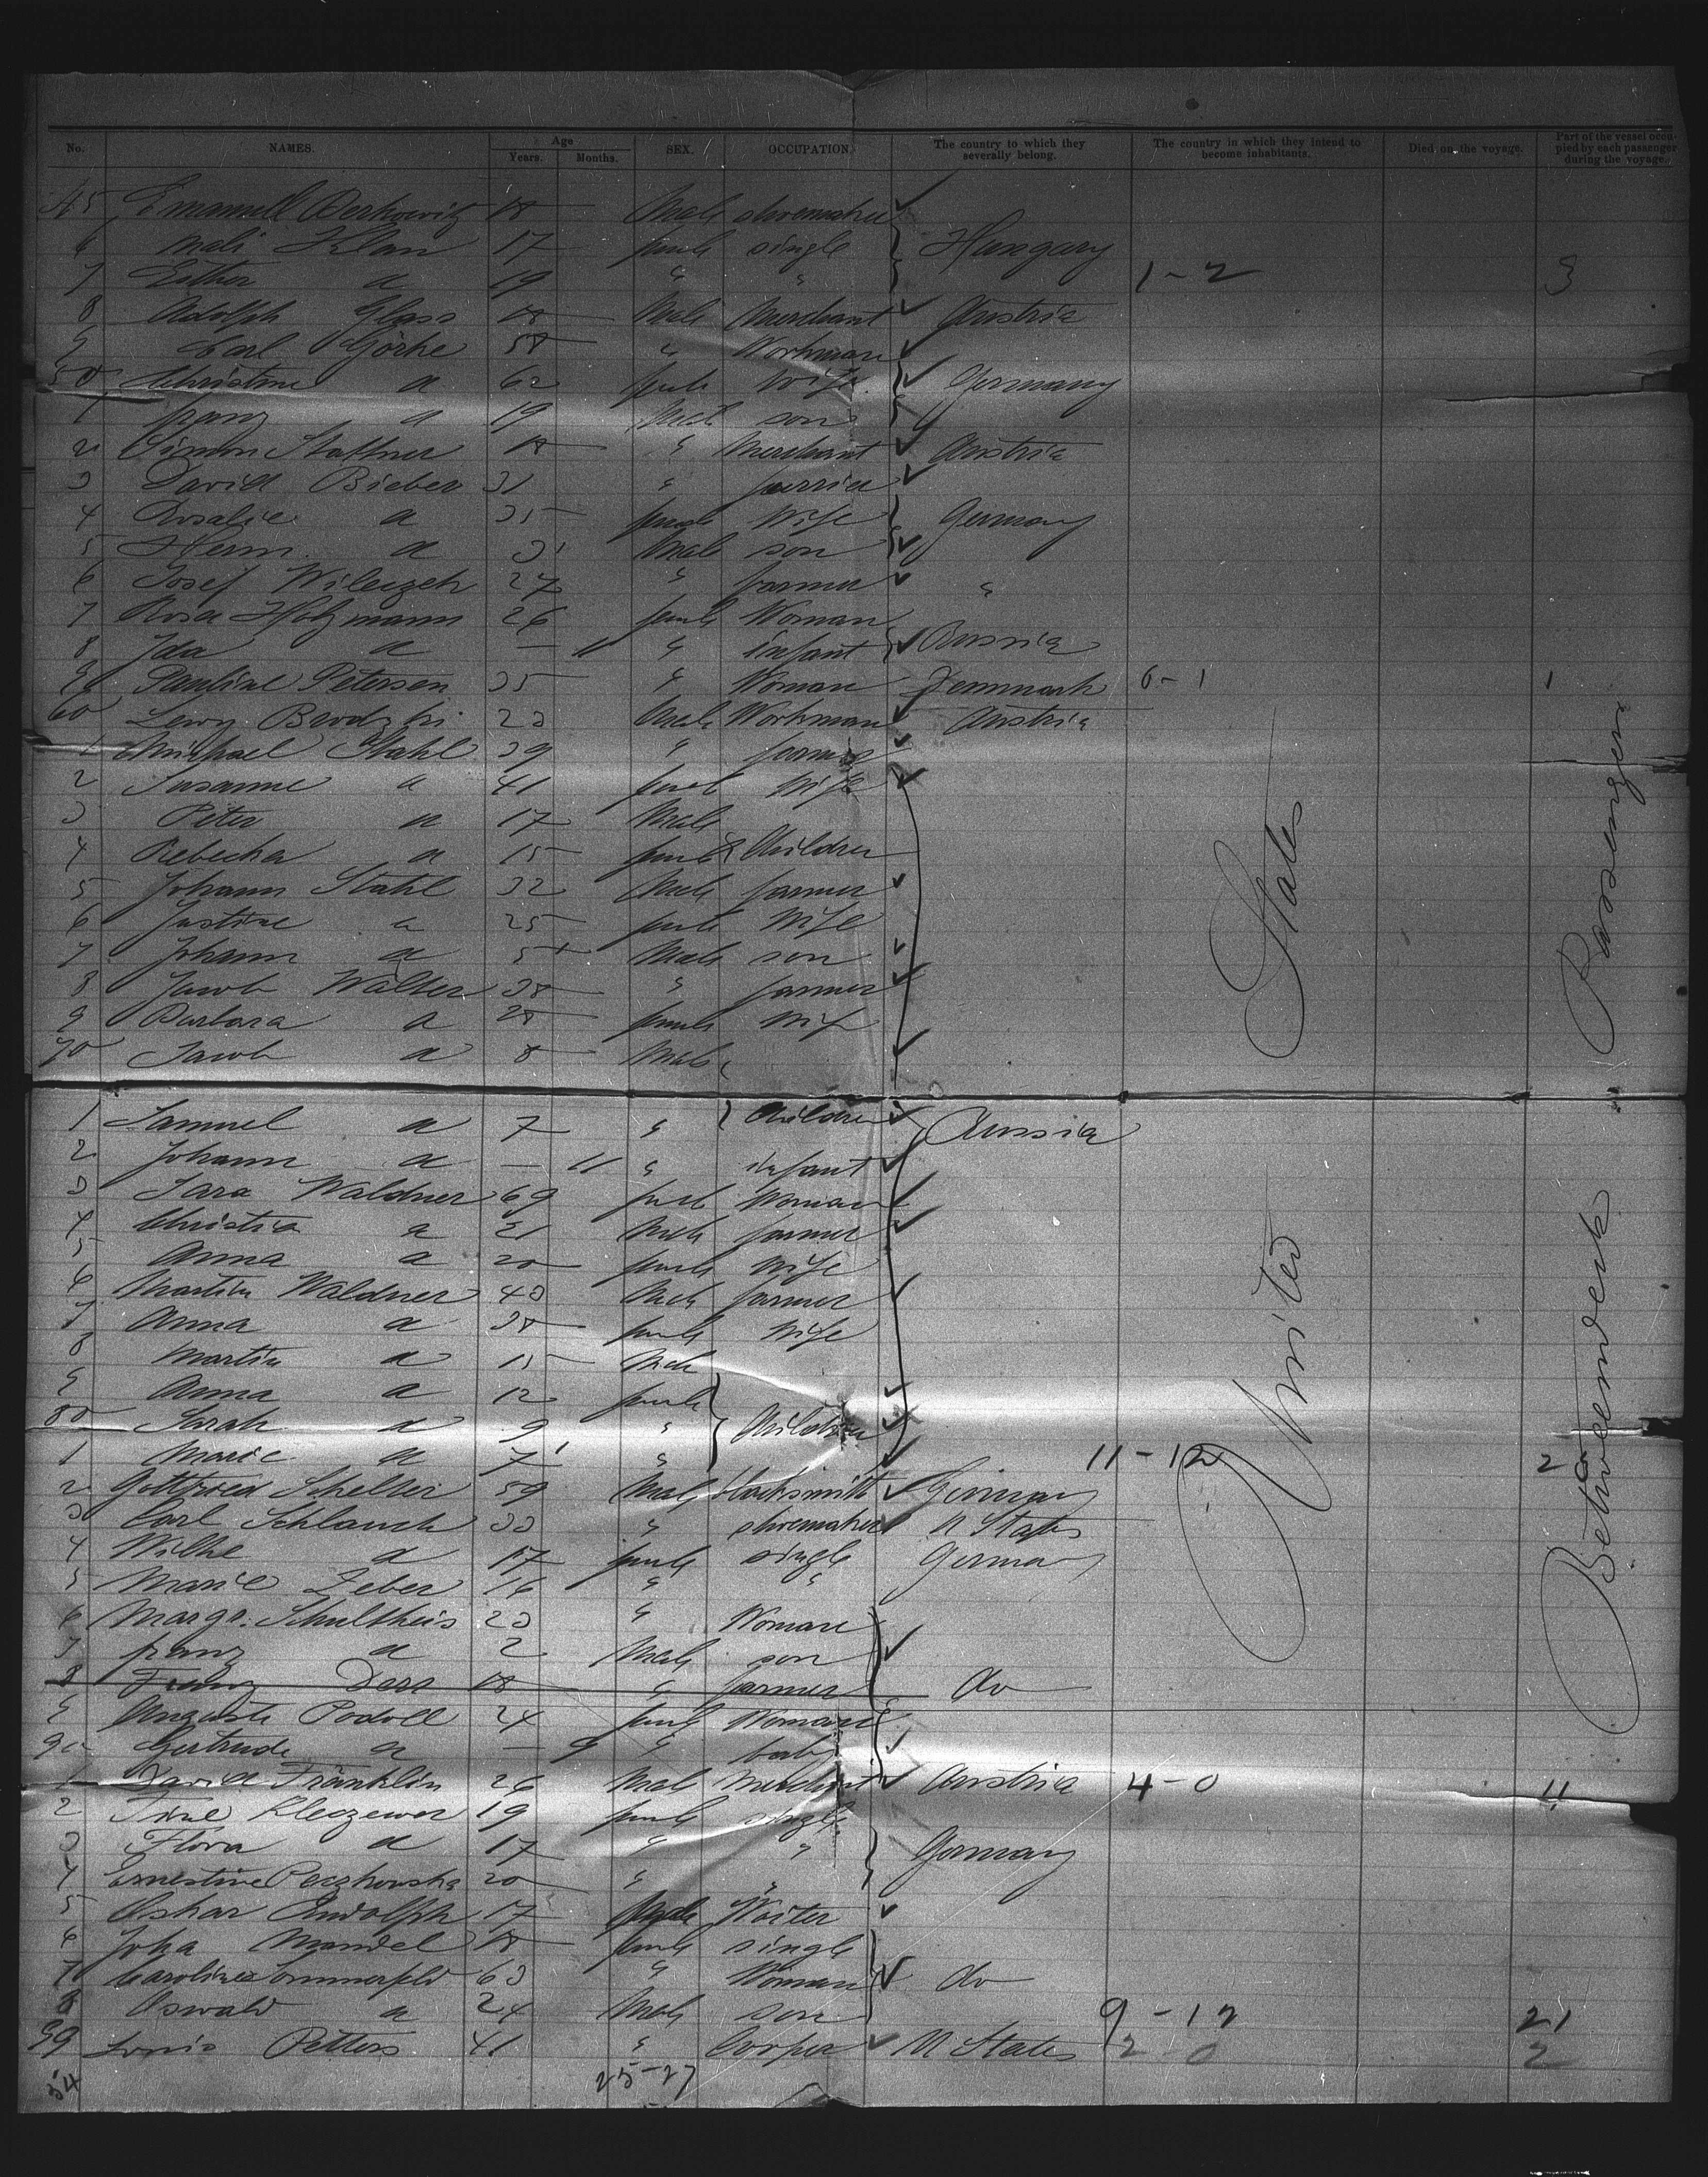 No. NAMES. Age Years. Months. SEX. OCCUPATION. The country to which they severally belong. The country in which they intend to become inhabitants. Died on the voyage. Part of the vessel occupied by each passenger during the voyage.
45 Emanuell Berkowitz 18 Male shoemaker
6 Mali Klan 17 female single Hungary
7 Esther a 19 " " 1-2 3
8 Adolph Glass 18 Male Merchant Austria
9 Carl Görke 58 " Workman
50 Christine a 62 female wife Germany
1 franz a 19 Male son
2 Simon Stattner 18 " Merchant Austria
3 David Bieber 31 "
4 Rosalie a 35 female wife Germany
5 Herm. a 3 Male son
6 Josef Wileczek 27 " farmer "
7 Rosa Holzmann 26 female Woman
8 Ida a — 11 " infant Russia
9 Pauline Petersen 35 " Woman Denmark 6-1 1
60 Lewy Brodzki 23 Male Workman Austria
1 Michael Stahl 39 " farmer
2 Susanne a 41 female wife
3 Peter a 17 Male
4 Rebecka a 15 female Children
5 Johann Stahl 32 Male farmer
6 Justine a 25 female Wife
7 Johann a 5 Male son
8 Jacob Walter 38 " farmer
9 Barbara a 28 female wife
70 Jacob a 8 Male
1 Samuel a 7 " Children Russia
2 Johann a — 11 " infant
3 Sara Waldner 69 female Woman
4 Christia a 21 Male farmer
5 Anna a 20 female wife
6 Martin Waldner 43 Male farmer
7 Anna a 38 female wife
8 Martin a 15 Male
9 Anna a 12 female
80 Sarah a 9 " Children
1 Marie a 7 " 11-12 2
2 Gottfried Schelter 59 Male blacksmith Germany
3 Carl Schlauch 33 " shoemaker U States
4 Wilhe a 17 female single Germany
5 Marie Zeber 16 " "
6 Margr. Schultheis 23 " Woman
7 franz a 2 Male son
8 Franz 18 " farmer do
9 Auguste Podoll 24 female Woman
90 Gertrude a — 9 " baby
1 David Fränklin 26 Male Merchant Austria 4-0 11
2 Tine Kleczewer 19 female single
3 Flora a 17 " " Germany
4 Ernestine Peczkowska 20 " "
5 Oskar Rudolph 17 Male Waiter
6 Joha Mandel 18 female single
7 Caroline Sommerfeld 63 " Woman do
8 Oswald a 24 Male son 9-12 21
99 Louis Petters 41 " U States 2-0 2
54 25-27
United States
Betweendeck Passengers